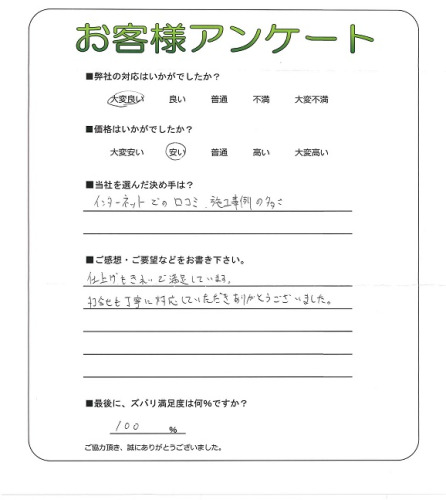 お客様アンケート
■弊社の対応はいかがでしたか？
大変良い 良い 普通 不満 大変不満
■価格はいかがでしたか？
大変安い 安い 普通 高い 大変高い
■当社を選んだ決め手は？
インターネットでの口コミ、施工事例の多さ
■ご感想・ご要望などをお書き下さい。
仕上げもきれいで満足しています。
打合せも丁寧に対応していただきありがとうございました。
■最後に、ズバリ満足度は何%ですか？
100 %
ご協力頂き、誠にありがとうございました。